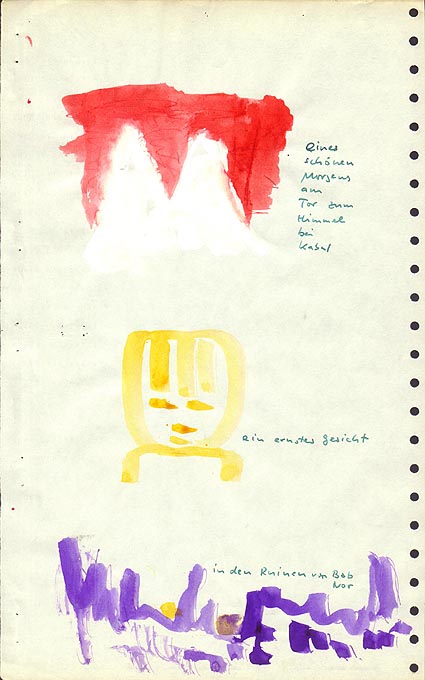 eines
schönen
Morgens
am
Tor zum
Himmel
bei
Kabul
ein ernstes Gesicht
in den Ruinen von Bob
Nor